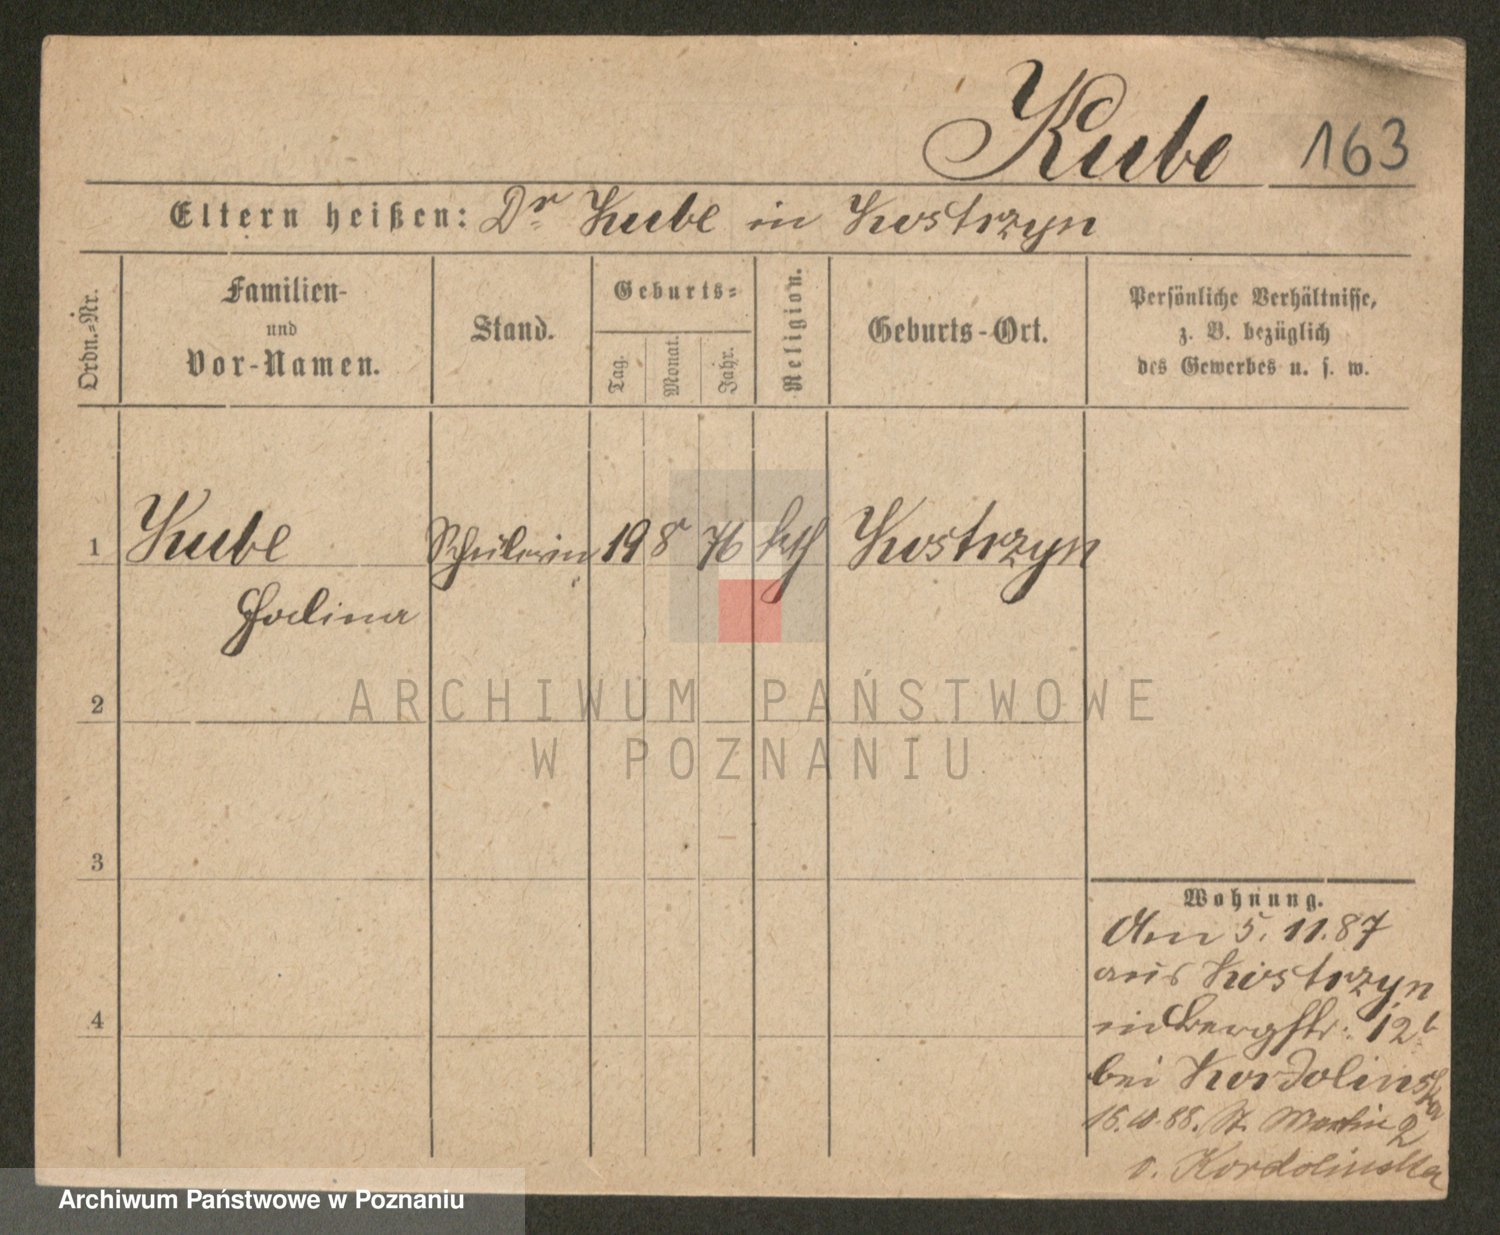 Kube 163
Eltern heißen: Dr Kube in Kostrzyn
Ordn.-Nr.
Familien-
und
Vor-Namen.
Stand.
Geburts-
Tag.
Monat.
Jahr.
Religion.
Geburts-Ort.
Persönliche Verhältnisse,
z. B. bezüglich
des Gewerbes u. s. w.
1 Kube Schülerin 19 8 76 kth Kostrzyn
2
3
4
Wohnung.
Den 5. 11. 87
aus Kostrzyn
in Bergstr. 12b
bei Kordolinska
St. Martin 2
b. Kordolinska
ARCHIWUM PAŃSTWOWE
W POZNANIU
Archiwum Państwowe w Poznaniu